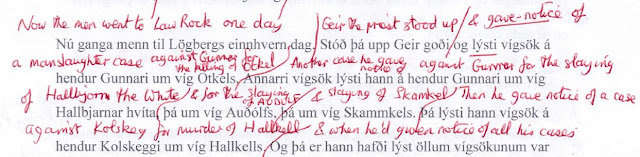 Now the men went to Law Rock one day / Geir the priest stood up / & gave notice of
Nú ganga menn til Lögbergs einhvern dag. Stóð þá upp Geir goði og lýsti vígsök á
a manslaughter case against Gunnar for the killing of Otkel / Another case he gave notice of against Gunnar for the slaying
hendur Gunnari um víg Otkels. Annarri vígsök lýsti hann á hendur Gunnari um víg
of Hallbjorn the White & for the slaying of AUDOLF / & slaying of Skamkel Then he gave notice of a case
Hallbjarnar hvíta, þá um víg Auðólfs, þá um víg Skammkels. Þá lýsti hann vígsök á
against Kolskeg for murder of Hallkell / & when he'd given notice of all his cases
hendur Kolskeggi um víg Hallkels. Og þá er hann hafði lýst öllum vígsökunum var